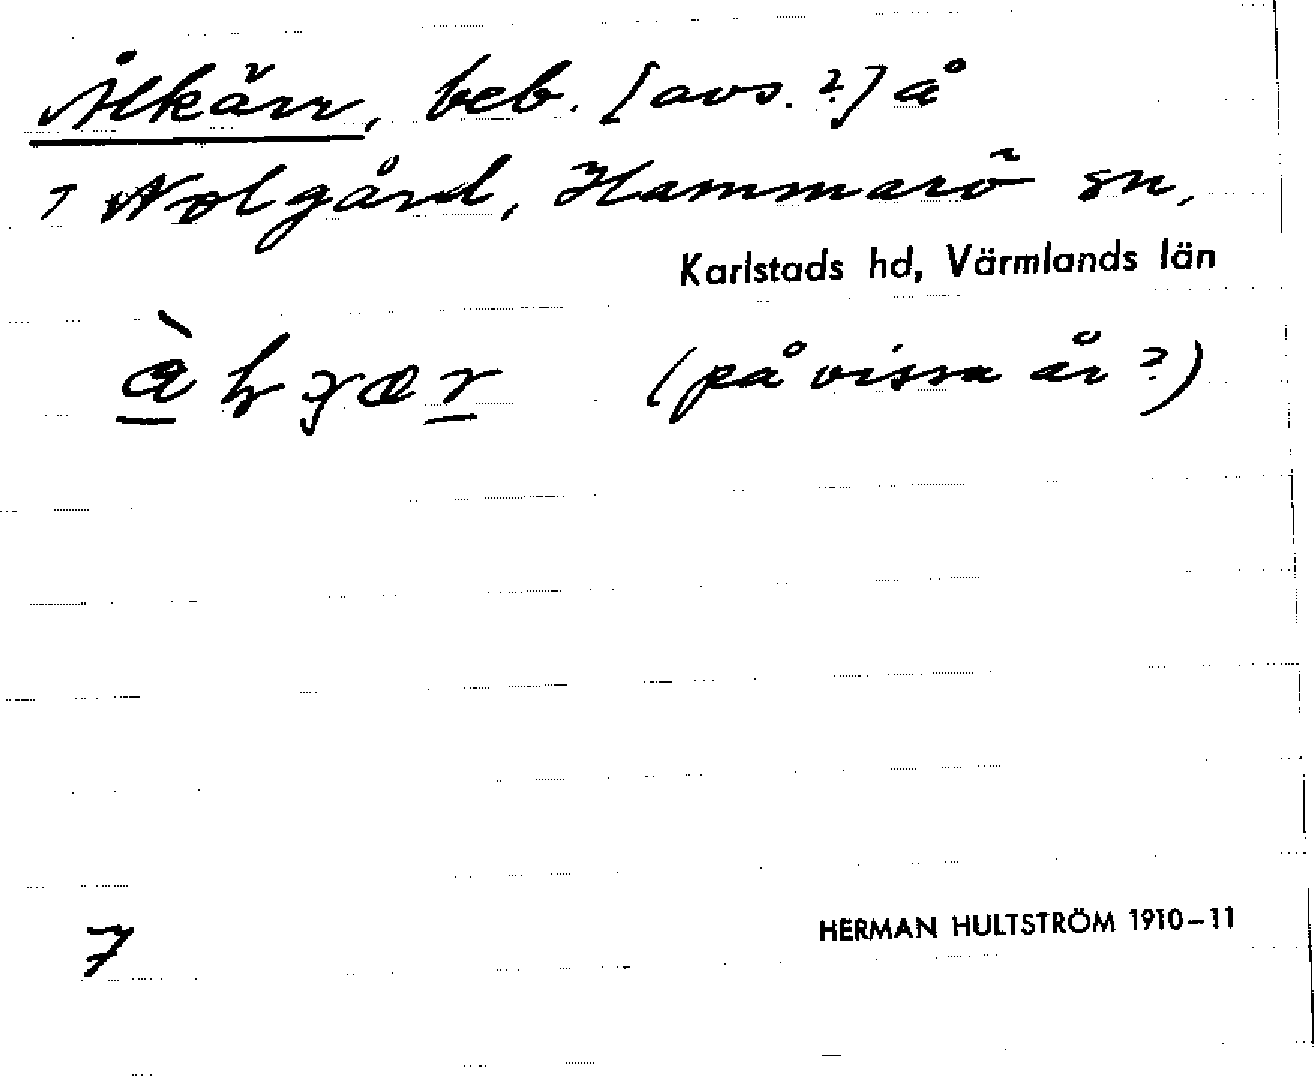 Ålkärr, beb. [avs.?] å
7 Nolgård, Hammarö sn,
Karlstads hd, Värmlands län
(på vissa år?)
7
HERMAN HULTSTRÖM 1910–11